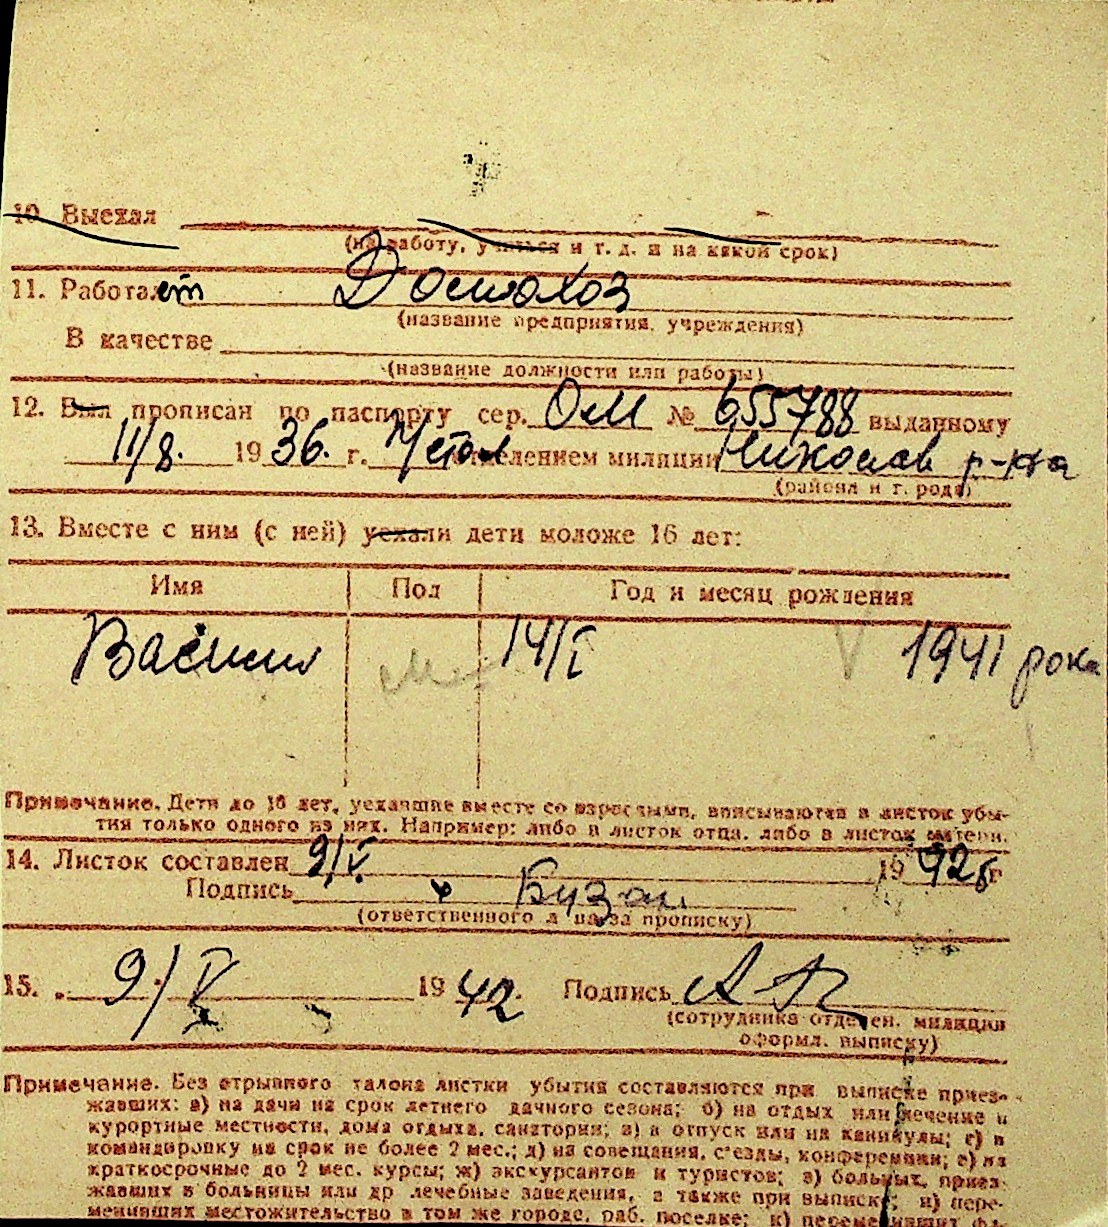 10. Выехал
(на работу, учиться и т. д. и на какой срок)
11. Работает
(название предприятия, учреждения)
В качестве
(название должности или работы)
12. Был прописан по паспорту сер. ОМ № 655788 выданному
11/8. 1936. г. отделением милиции Николаев р-на
(района и города)
13. Вместе с ним (с ней) уехали дети моложе 16 лет:
Имя Пол Год и месяц рождения
Василий 14/I 1941 рока
Примечание. Дети до 16 лет, уехавшие вместе со взрослыми, вписываются в листок убы-
тия только одного из них. Например: либо в листок отца, либо в листок матери.
14. Листок составлен 9/V. 1942 г.
Подпись Бузан
(ответственного л на за прописку)
15. 9/V 1942. Подпись
(сотрудника отделен. милиции
оформл. выписку)
Примечание. Без отрывного талона листки убытия составляются при выписке приез-
жавших: а) на дачи на срок летнего дачного сезона; б) на отдых или лечение в
курортные местности, дома отдыха, санатории; в) в отпуск или на каникулы; г) в
командировку на срок не более 2 мес.; д) на совещания, съезды, конференции; е) на
краткосрочные до 2 мес. курсы; ж) экскурсантов и туристов; з) больных, приез-
жавших в больницы или др лечебные заведения, а также при выписке; и) пере-
менивших местожительство в том же городе, раб. поселке; к)